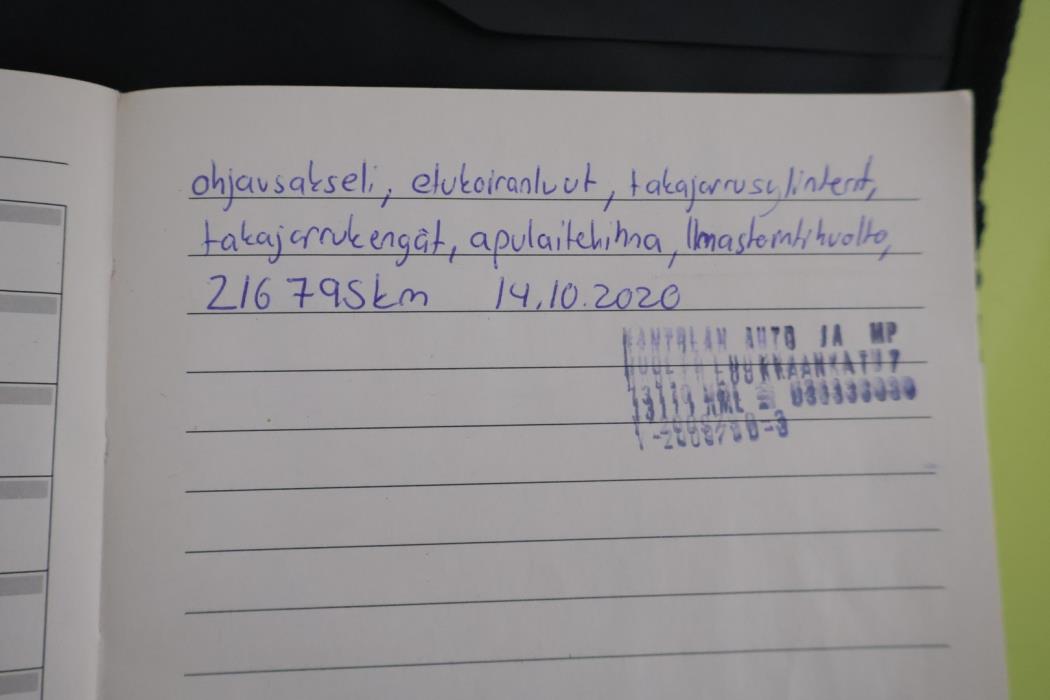 ohjausakseli, etukoiranluut, takajarrusylinterit,
takajarrukengät, apulaitehihna, Ilmastointihuolto,
216 795km 14.10.2020
AUTO JA MP
HML